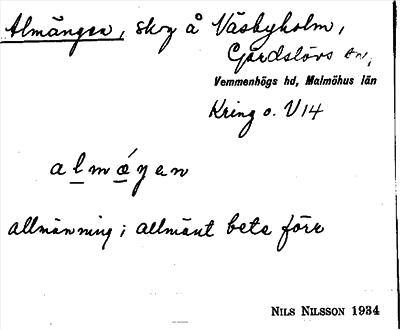 Almängen, skz å Väsbyholm,
Gärdslövs sn,
Vemmenhögs hd, Malmöhus län
Kring o. V 14
almǫ́ŋen
allmänning; allmänt bete förr
NILS NILSSON 1934